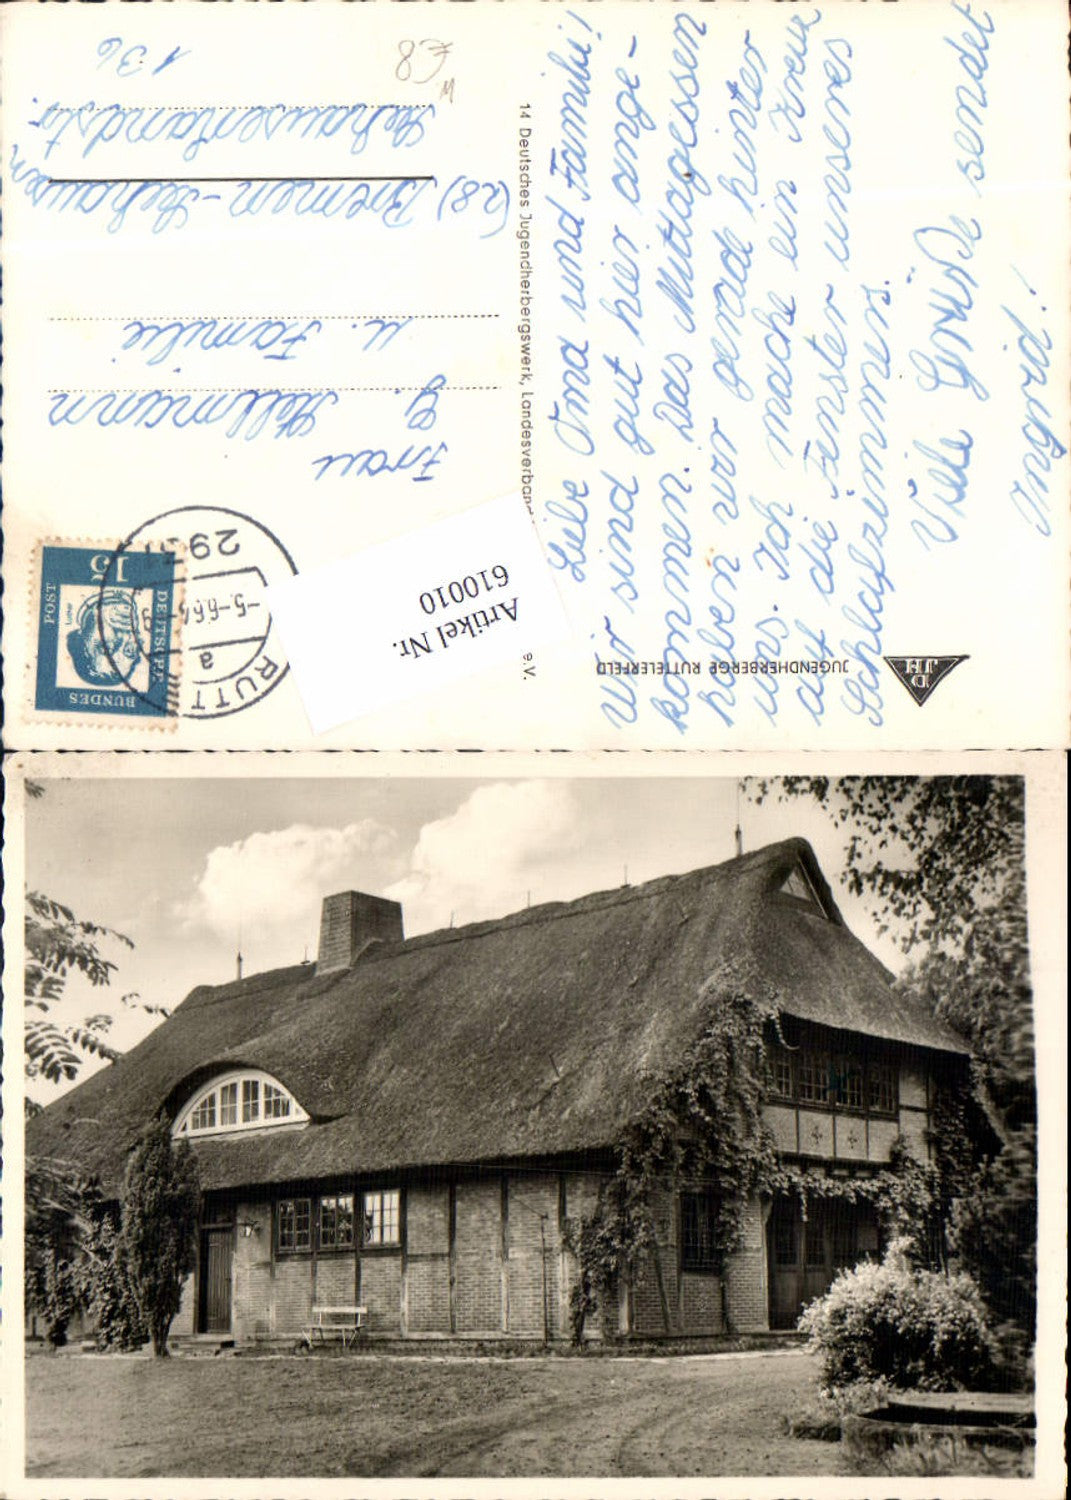 Liebe Oma und Familie!
Wir sind gut hier ange-
kommen. Das Mittagessen
haben wir gerade hinter
uns. Ich mache ein Kreuz
auf die Fenster unseres
Schlafzimmers.
Viele Grüße sendet
Ingrid!
JUGENDHERBERGE RUTTELERFELD
DJH
14 Deutsches Jugendherbergswerk, Landesverband
e.V.
Artikel Nr.
610010
DEUTSCHE
BUNDES
POST
15
Luther
RUTT
a
-5.-6.64-
29
Frau
G. Hellmann
u. Familie
(28) Bremen-Seehausen
Seehauserlandstr.
136
€8